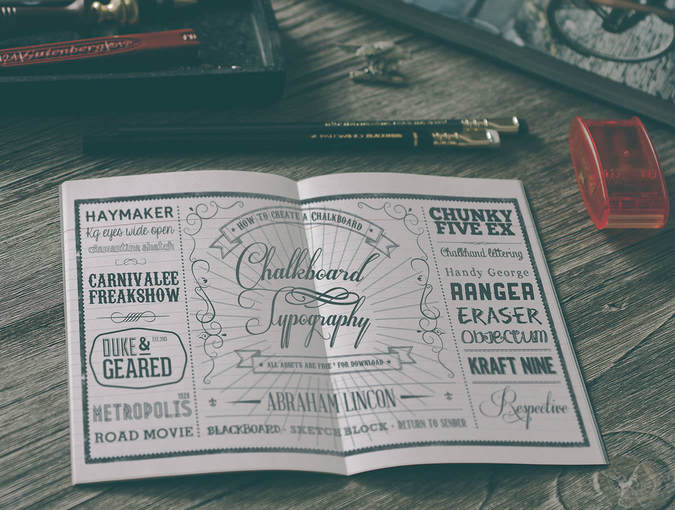 HAYMAKER
Kg eyes wide open
clementine sketch
CARNIVALEE
FREAKSHOW
DUKE &
EST. 2013
GEARED
METROPOLIS
1920
ROAD MOVIE
HOW TO CREATE A CHALKBOARD
Chalkboard
Typography
ALL ASSETS ARE FREE * FOR DOWNLOAD
ABRAHAM LINCON
BLACKBOARD - SKETCH BLOCK - RETURN TO SENDER
CHUNKY
FIVE EX
Chalkhand lettering
Handy George
RANGER
ERASER
OBJECTUM
KRAFT NINE
Respective